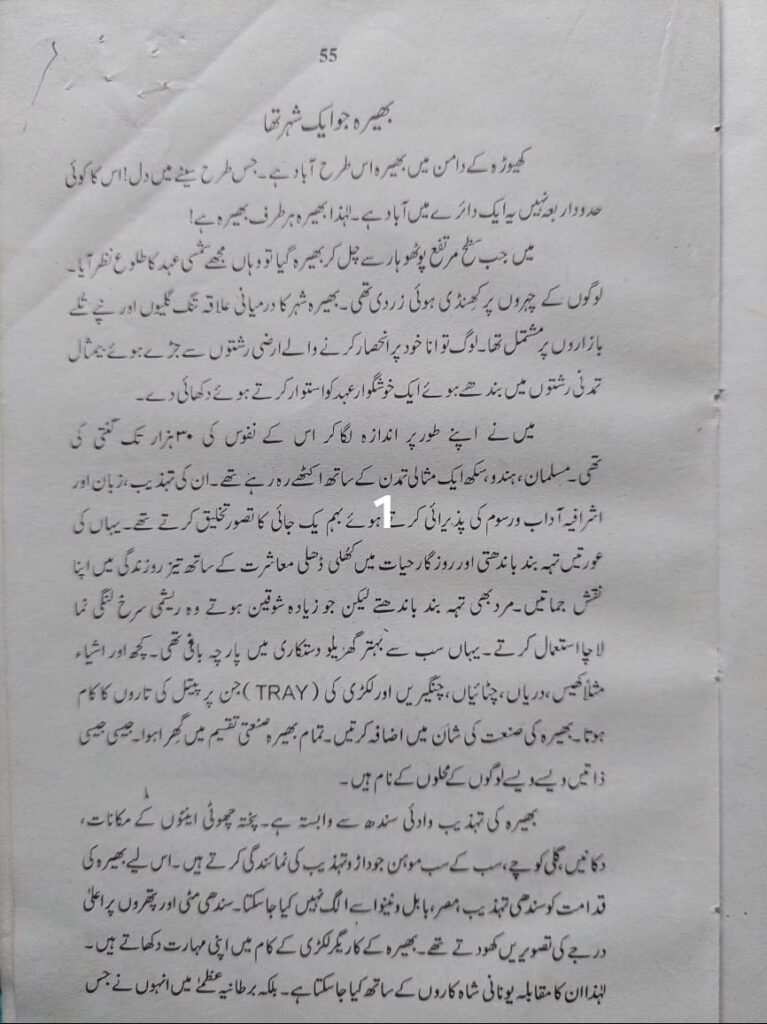 55
بھیرہ جو ایک شہر تھا
کھیوڑہ کے دامن میں بھیرہ اس طرح آباد ہے۔ جس طرح سینے میں دل! اس کا کوئی
حدود اربعہ نہیں یہ ایک دائرے میں آباد ہے۔ لہٰذا بھیرہ ہر طرف بھیرہ ہے!
میں جب سطح مرتفع پوٹھوہار سے چل کر بھیرہ گیا تو وہاں مجھے شمسی عہد کا طلوع نظر آیا۔
لوگوں کے چہروں پر کھنڈی ہوئی زردی تھی۔ بھیرہ شہر کا درمیانی علاقہ تنگ گلیوں اور نپے تلے
بازاروں پر مشتمل تھا۔ لوگ توانا خود پر انحصار کرنے والے ارضی رشتوں سے جڑے ہوئے بیمثال
تمدنی رشتوں میں بندھے ہوئے ایک خوشگوار عہد کو استوار کرتے ہوئے دکھائی دے۔
میں نے اپنے طور پر اندازہ لگا کر اس کے نفوس کی ۳۰ ہزار تک گنتی کی
تھی۔ مسلمان، ہندو، سکھ ایک مثالی تمدن کے ساتھ اکٹھے رہ رہے تھے۔ ان کی تہذیب، زبان اور
اشرافیہ آداب ورسوم کی پذیرائی کرتے ہوئے بہم یک جائی کا تصور تخلیق کرتے تھے۔ یہاں کی
1
عورتیں تہہ بند باندھتی اور روزگار حیات میں کھلی ڈھلی معاشرت کے ساتھ تیز روزندگی میں اپنا
نقش جماتیں۔ مرد بھی تہہ بند باندھتے لیکن جو زیادہ شوقین ہوتے وہ ریشمی سرخ لنگی نما
لاچا استعمال کرتے۔ یہاں سب سے بہتر گھریلو دستکاری میں پارچہ بافی تھی۔ کچھ اور اشیاء
مثلاً کھیس، دریاں، چٹائیاں، چنگیریں اور لکڑی کی (TRAY) جن پر پیتل کی تاروں کا کام
ہوتا۔ بھیرہ کی صنعت کی شان میں اضافہ کرتیں۔ تمام بھیرہ صنعتی تقسیم میں گھرا ہوا۔ جیسی جیسی
ذاتیں ویسے ویسے لوگوں کے محلوں کے نام ہیں۔
بھیرہ کی تہذیب وادئی سندھ سے وابستہ ہے۔ پختہ چھوٹی اینٹوں کے مکانات،
دکانیں، گلی کوچے، سب کے سب موہن جوداڑو تہذیب کی نمائندگی کرتے ہیں۔ اس لیے بھیرہ کی
قدامت کو سندھی تہذیب، مصر، بابل ونینوا سے الگ نہیں کیا جاسکتا۔ سندھی مٹی اور پتھروں پر اعلیٰ
درجے کی تصویریں کھودتے تھے۔ بھیرہ کے کاریگر لکڑی کے کام میں اپنی مہارت دکھاتے ہیں۔
لہٰذا ان کا مقابلہ یونانی شاہ کاروں کے ساتھ کیا جاسکتا ہے۔ بلکہ برطانیہ عظمےٰ میں انہوں نے جس